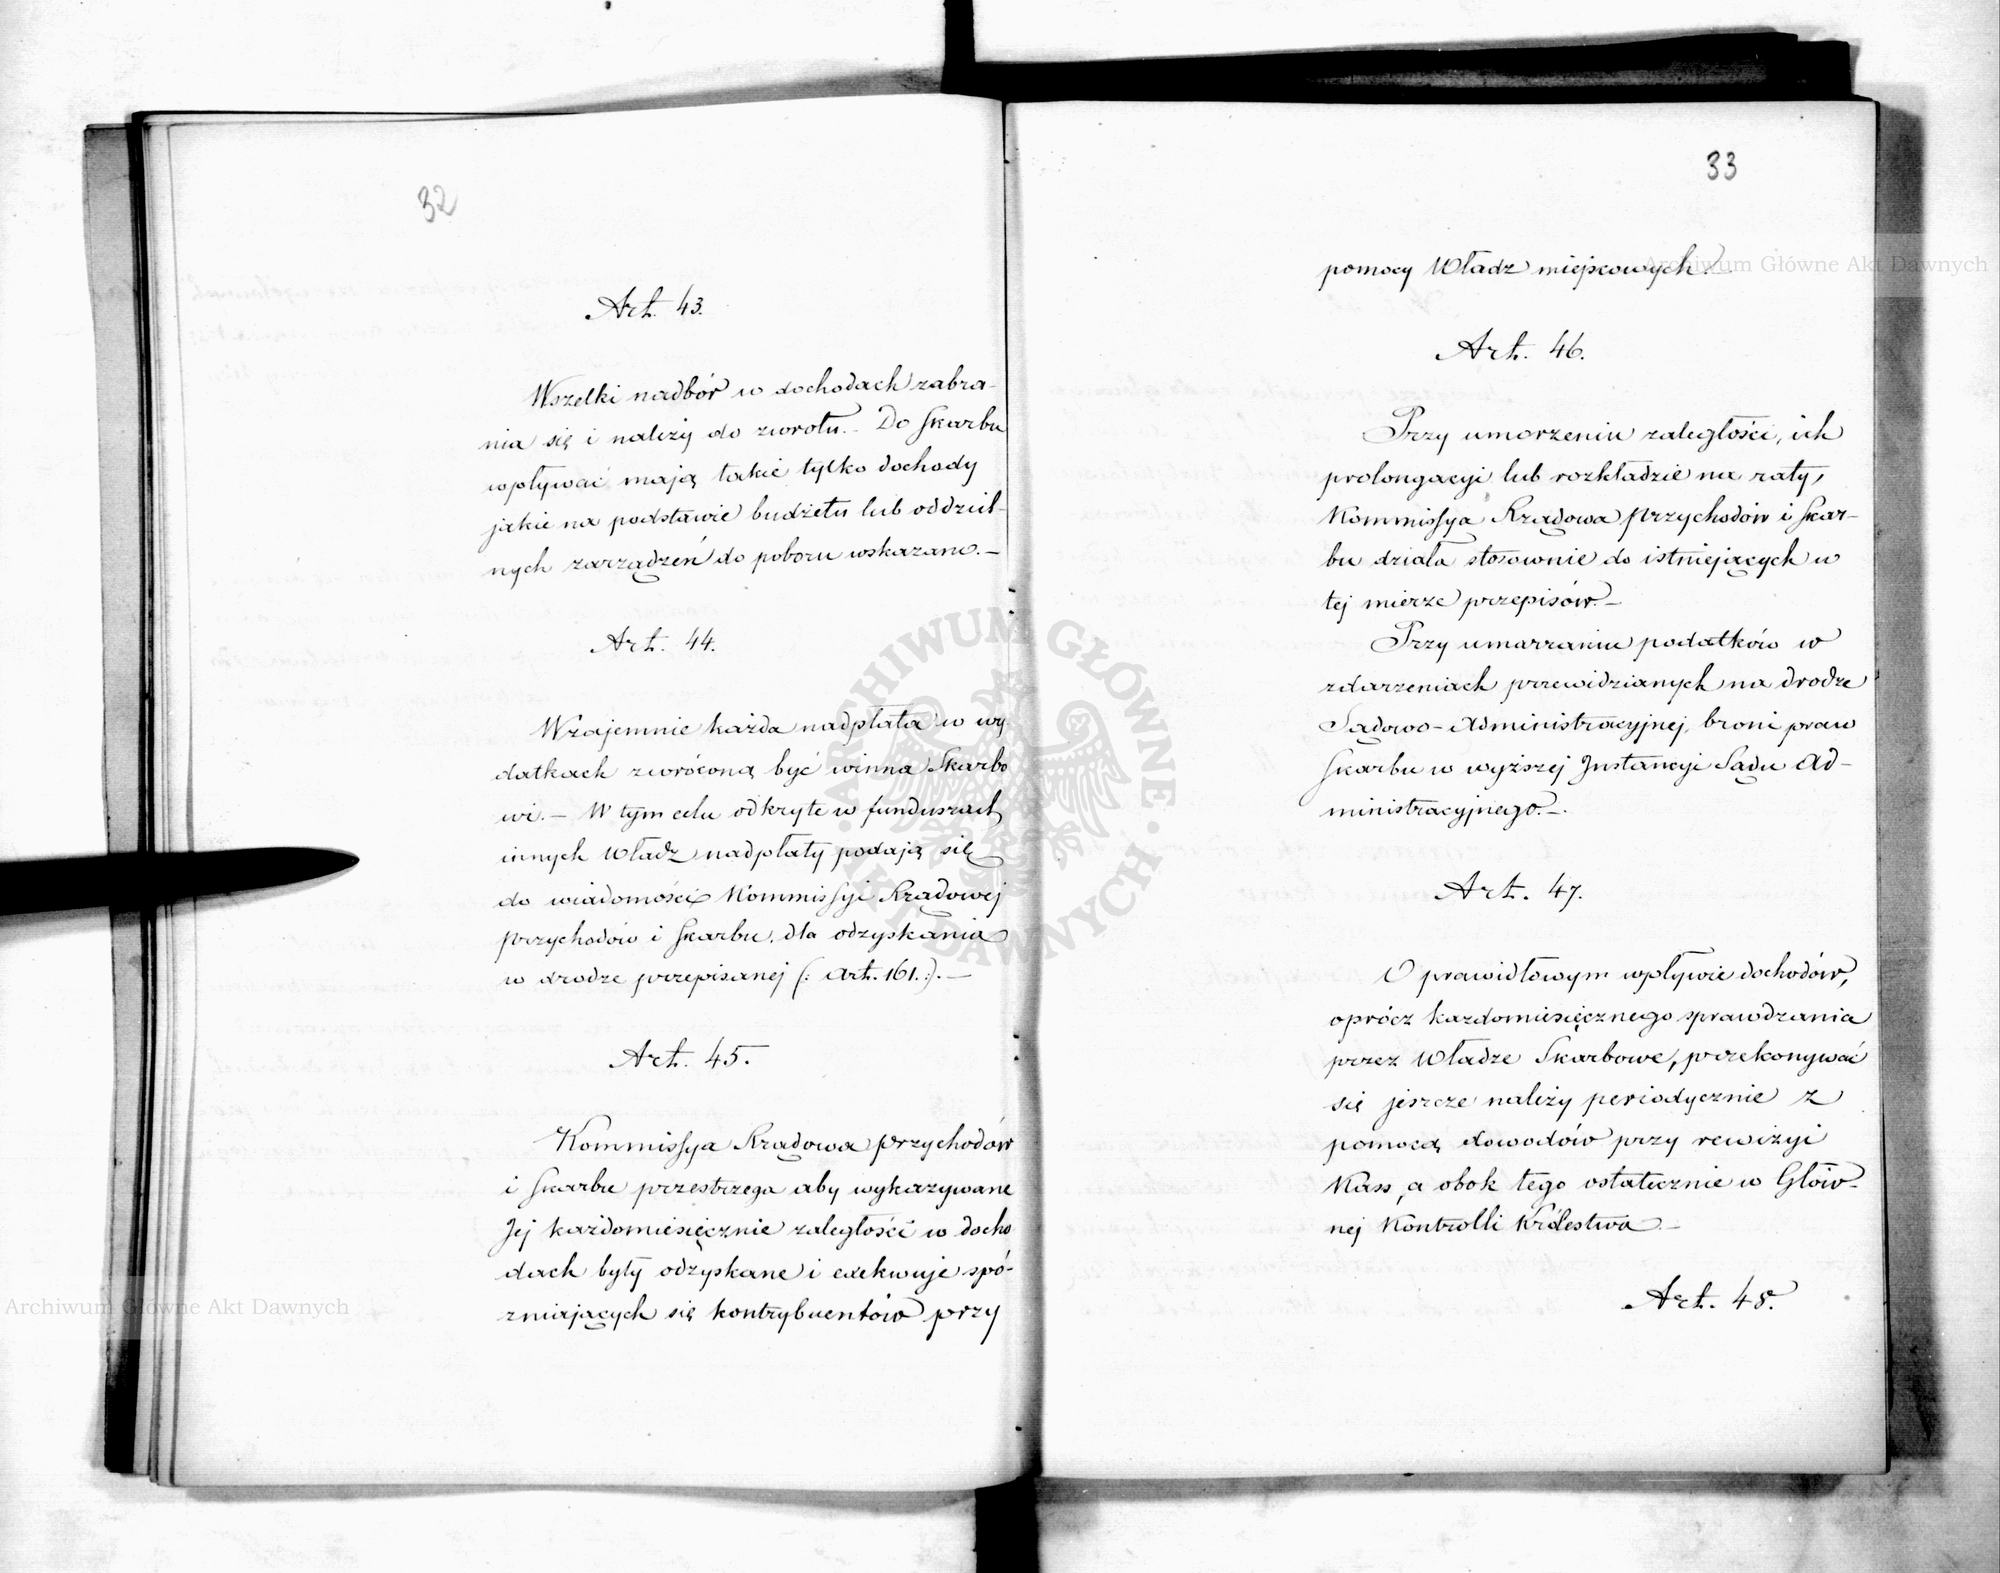 32
Art. 43.
Wszelki nadbór w dochodach zabra-
nia się i należy do zwrotu.- Do Skarbu
wpływać mają takie tylko dochody
jakie na podstawie budżetu lub oddziel-
nych zarządzeń do poboru wskazano.-
Art. 44.
Wzajemnie każda nadpłata w wy-
datkach zwróconą być winna Skarbo
wi.- W tym celu odkryte w funduszach
innych Władz nadpłaty podają się
do wiadomości Kommissyi Rządowej
Przychodów i Skarbu, dla odzyskania
w drodze przepisanej (: Art. 161.:).-
Art. 45.
Kommissya Rządowa Przychodów
i Skarbu przestrzega aby wykazywane
Jej każdomiesięcznie zaległości w docho
dach były odzyskane i exekwuje spó-
zniających się kontrybuentów przy
33
pomocy Władz miejscowych.-
Art. 46.
Przy umorzeniu zaległości, ich
prolongacyi lub rozkładzie na raty,
Kommissya Rządowa Przychodów i Skar-
bu działa stosownie do istniejących w
tej mierze przepisów.-
Przy umarzaniu podatków w
zdarzeniach przewidzianych na drodze
Sądowo-Administracyjnej, broni praw
Skarbu w wyższej Instancyi Sądu Ad-
ministracyjnego.-
Art. 47.
O prawidłowym wpływie dochodów,
oprócz kazdomiesięcznego sprawdzania
przez Władze Skarbowe, przekonywać
się jeszcze należy periodycznie z
pomocą dowodów przy rewizyi
Kass, a obok tego ostatecznie w Głów-
nej Kontrolli Królestwa.-
Art. 48.
Archiwum Główne Akt Dawnych
ARCHIWUM GŁÓWNE AKT DAWNYCH
Archiwum Główne Akt Dawnych